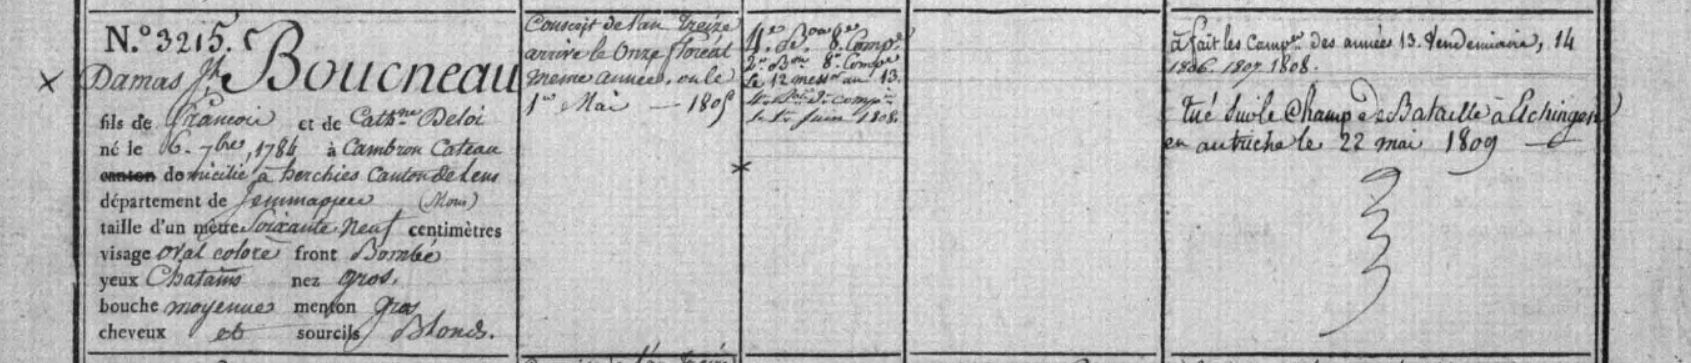 N.º 3215. Boucneau
Damas Jh
fils de francois et de Cathne Deloi
né le 6. 7bre, 1784 à Cambron Cateau
canton domicilié à herchies Canton de Lens
département de Jemmappes (Mons)
taille d'un mètre Soixante Neuf centimètres
visage Oval coloré front Bombé
yeux Chatains nez gros.
bouche moyenne menton gros
cheveux et sourcils Blonds.
Conscrit de l'an treize
arrivé le Onze floreal
meme année, ou le
1er Mai — 1805
4e de Bone 8e Compe
2e Bon 8e Compe
le 12 messor an 13.
compie
Juin 1808.
à fait les campes des années 13. Vendemiaire, 14
1806. 1807. 1808.
tué sur le Champ de Bataille à
en autriche le 22 mai 1809